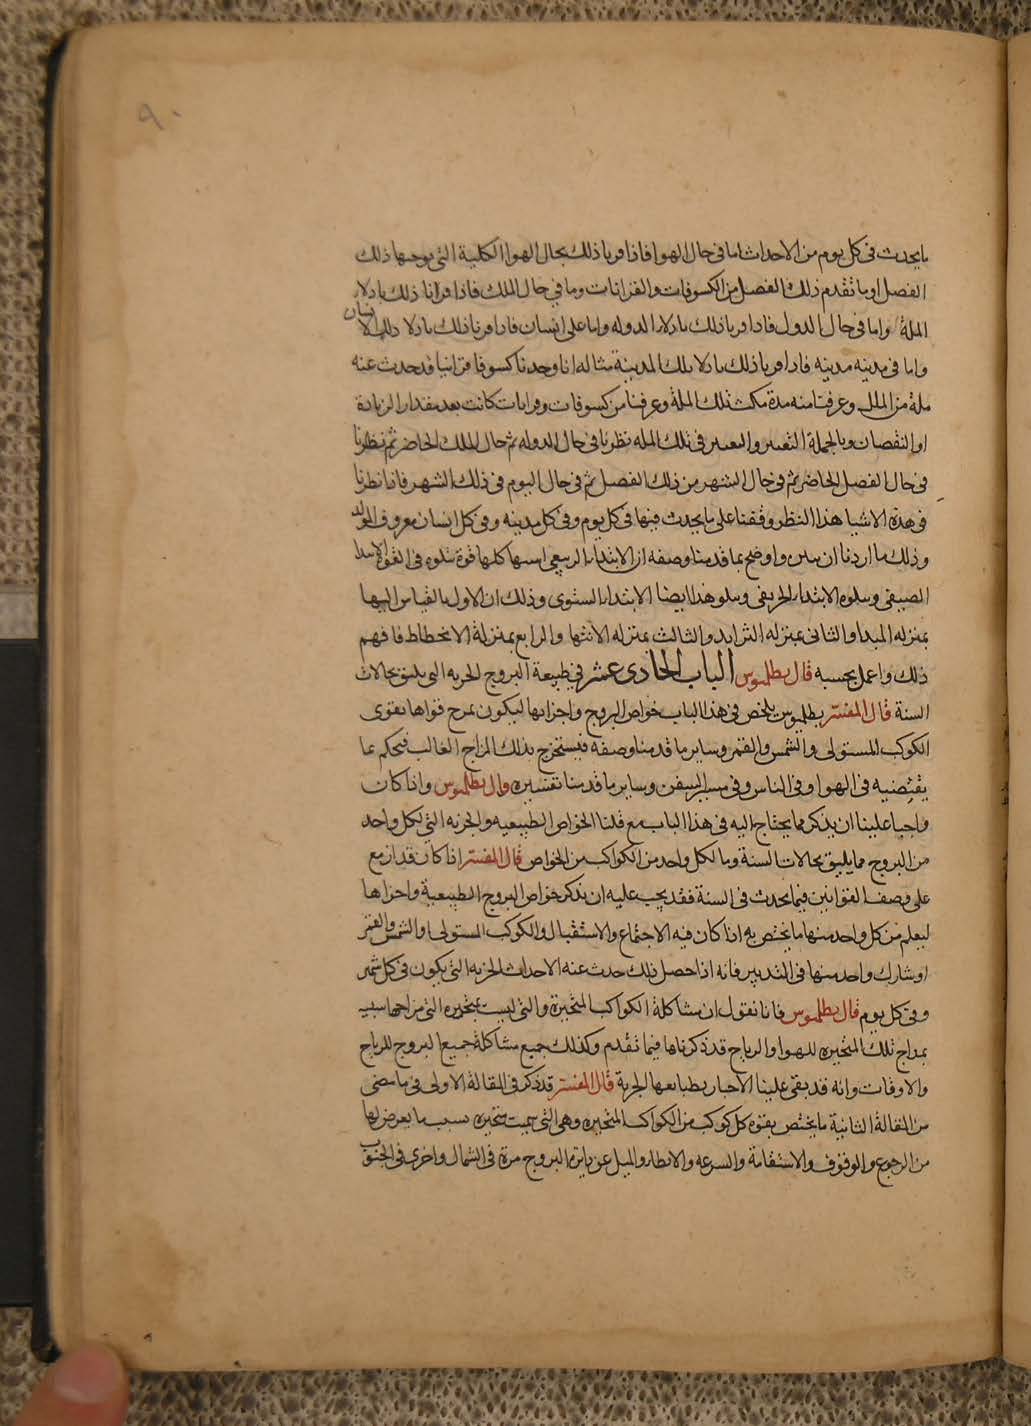 ٩٠
ما يحدث فى كل يوم من الاحداث اما فى حال الهوا فاذا قرنا ذلك بحال الهوا الكلية التى يوجبها ذلك
الفصل او ما تقدم ذلك الفصل من الكسوفات والقرانات وما فى حال الملك فاذا قرانا ذلك بادلا
الملة واما فى حال الدول فاذا قرنا ذلك بادلا الدوله واما على انسان فاذا قرنا ذلك بادلا ذلك الانسان
واما فى مدينه مدينه فاذا قرنا ذلك بادلا تلك المدينة مثاله انا وجدنا كسوفا قرانيا قد حدث عنه
ملة من الملل وعرفنا منه مدة مكث تلك الملة وعرفنا من كسوفات وقرانات كانت بعد مقدار الزيادة
او النقصان وبالجملة التغيير فى تلك المله نظرنا فى حال الدوله ثم حال الملك الحاضر ثم نظرنا
فى حال الفصل الحاضر ثم فى حال الشهر من ذلك الفصل ثم فى حال اليوم فى ذلك الشهر فاذا نظرنا
فى هذه الاشيا هذا النظر وقفنا على ما يحدث فيها فى كل يوم وفى كل مدينه وفى كل انسان معروف المولد
وذلك ما اردنا ان نبين واوضح بما قدمنا وصفه ان الابتداء الربيعى اسها كلها قوة نتلوه فى القوة الابتدا
الصيفى ويتلوه الابتداء الخريفى ويتلو هذا ايضا الابتداء الستوى وذلك ان الاول بالقياس اليها
بمنزله المبدا والثانى بمنزله التزايد والثالث بمنزله الانتها والرابع بمنزلة الانحطاط فافهم
ذلك واعمل بحسبه قال بطلميوس الباب الحادى عشر فى طبيعة البروج الجزيه التى يليق بحالات
السنة قال المفسر بطلميوس يلخص فى هذا الباب خواص البروج واجزايها ليكون يمزج قواها بقوى
الكوكب المستولى والشمس والقمر وساير ما قدمنا وصفه فيستخرج بذلك المزاج الغالب فيحكم بما
يقتضيه فى الهوا وفى الناس وفى مسير السفن وساير ما قدمنا تفسيره قال بطلميوس واذا كان
واجبا علينا ان نذكر مما يحتاج اليه فى هذا الباب مع قلنا الخواص الطبيعيه والجزيه التى لكل واحد
من البروج مما يليق بحالات السنة وما لكل واحد من الكواكب من الخواص قال المفسر اذا كان قد ازمع
على وصف القوانين فيما يحدث فى السنة فقد يجب عليه ان يذكر خواص البروج الطبيعية واجزاها
ليعلم من كل واحد منها ما يختص به اذا كان فيه الاجتماع والاستقبال والكوكب المستولى والشمس والقمر
او شارك واحد منها فى التدبير فانه اذا حصل ذلك حدث عنه الاحداث الجزيه التى يكون فى كل شهر
وفى كل يوم قال بطلميوس فانا نقول ان مشاكلة الكواكب المتحيرة والتى ليست بمتحيره التى مزاجها شبيه
بمزاج تلك المتحيره للهوا والرياح قد ذكرناها فيما تقدم وكذلك جميع مشاكلة جميع البروج للرياح
والاوقات وانه قد بقى علينا الاخبار بطبايعها الجزية قال المفسر قد ذكر فى المقالة الاولى فى ما مضى
من المقالة الثانية ما يختص بقوة كل كوكب من الكواكب المتحيره وهى التى سميت متحيره بسبب ما يعرض لها
من الرجوع والوقوف والاستقامة والسرعه والابطا والميل عن دايرة البروج مرة فى الشمال واخرى فى الجنوب